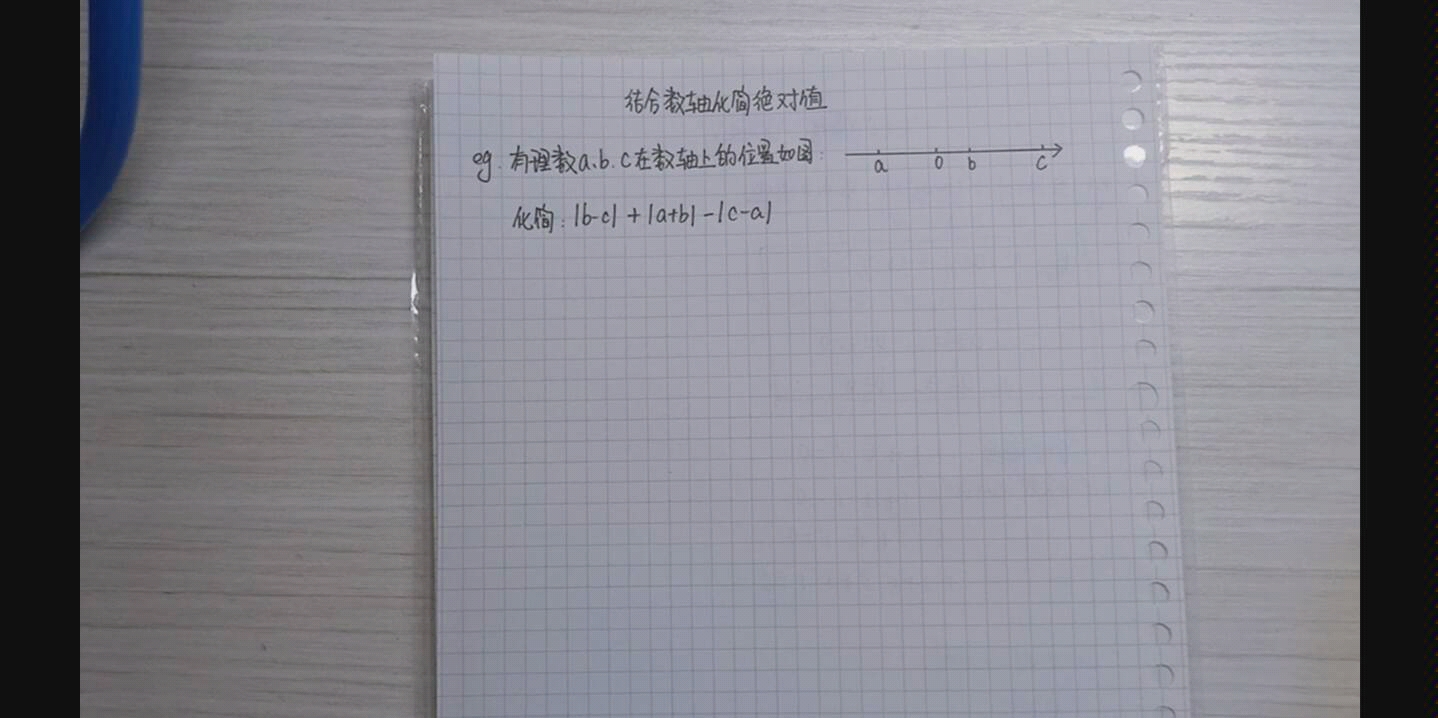 结合数轴化简绝对值
eg. 有理数a、b、c在数轴上的位置如图:
a 0 b c
化简: |b-c| + |a+b| - |c-a|